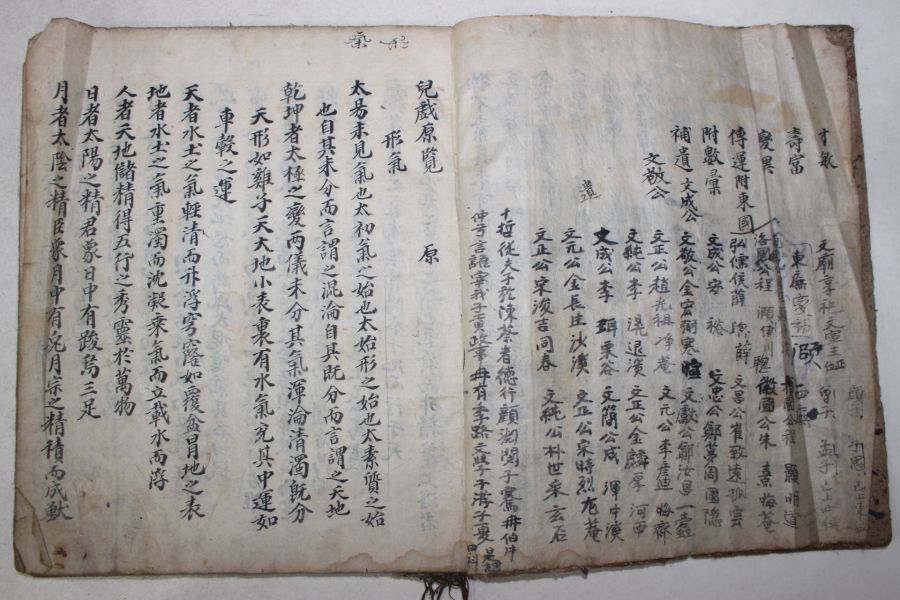 才敏
壽富
變異
傳運附東國
附數彙
補遺
文廟享祀文宣王
東廡
洛國公程頤伊川
弘儒侯薛聰
文昌公崔致遠孤雲
文成公安裕
文忠公鄭夢周圃隱
文成公
文敬公金宏弼寒暄
文獻公鄭汝昌一蠹
文敬公
文正公趙光祖凈菴
文元公李彦迪晦齋
文純公李滉退溪
文正公金麟厚河西
文成公李珥栗谷
文簡公成渾牛溪
遺
文元公金長生沙溪
文正公宋時烈尤菴
文正公宋浚吉同春
文純公朴世采玄石
十哲從夫子於陳蔡者德行顔淵閔子騫冉伯牛
仲弓言語宰我子貢政事冉有季路文學子游子夏
形氣
兒戱原覽 原
形氣
太易未見氣也太初氣之始也太始形之始也太素質之始
也自其未分而言謂之混淪自其旣分而言謂之天地
乾坤者太極之變兩儀未分其氣渾淪淸濁旣分
天形如雞子天大地小表裏有水氣充其中運如
車轂之運
天者水土之氣輕淸而升浮穹窿如覆盆冒地之表
地者水土之氣重濁而沈凝乘氣而立載水而浮
人者天地儲精得五行之秀靈於萬物
日者太陽之精君象日中有踆烏三足
月者太陰之精臣象月中有兎月宗之精積而成獸